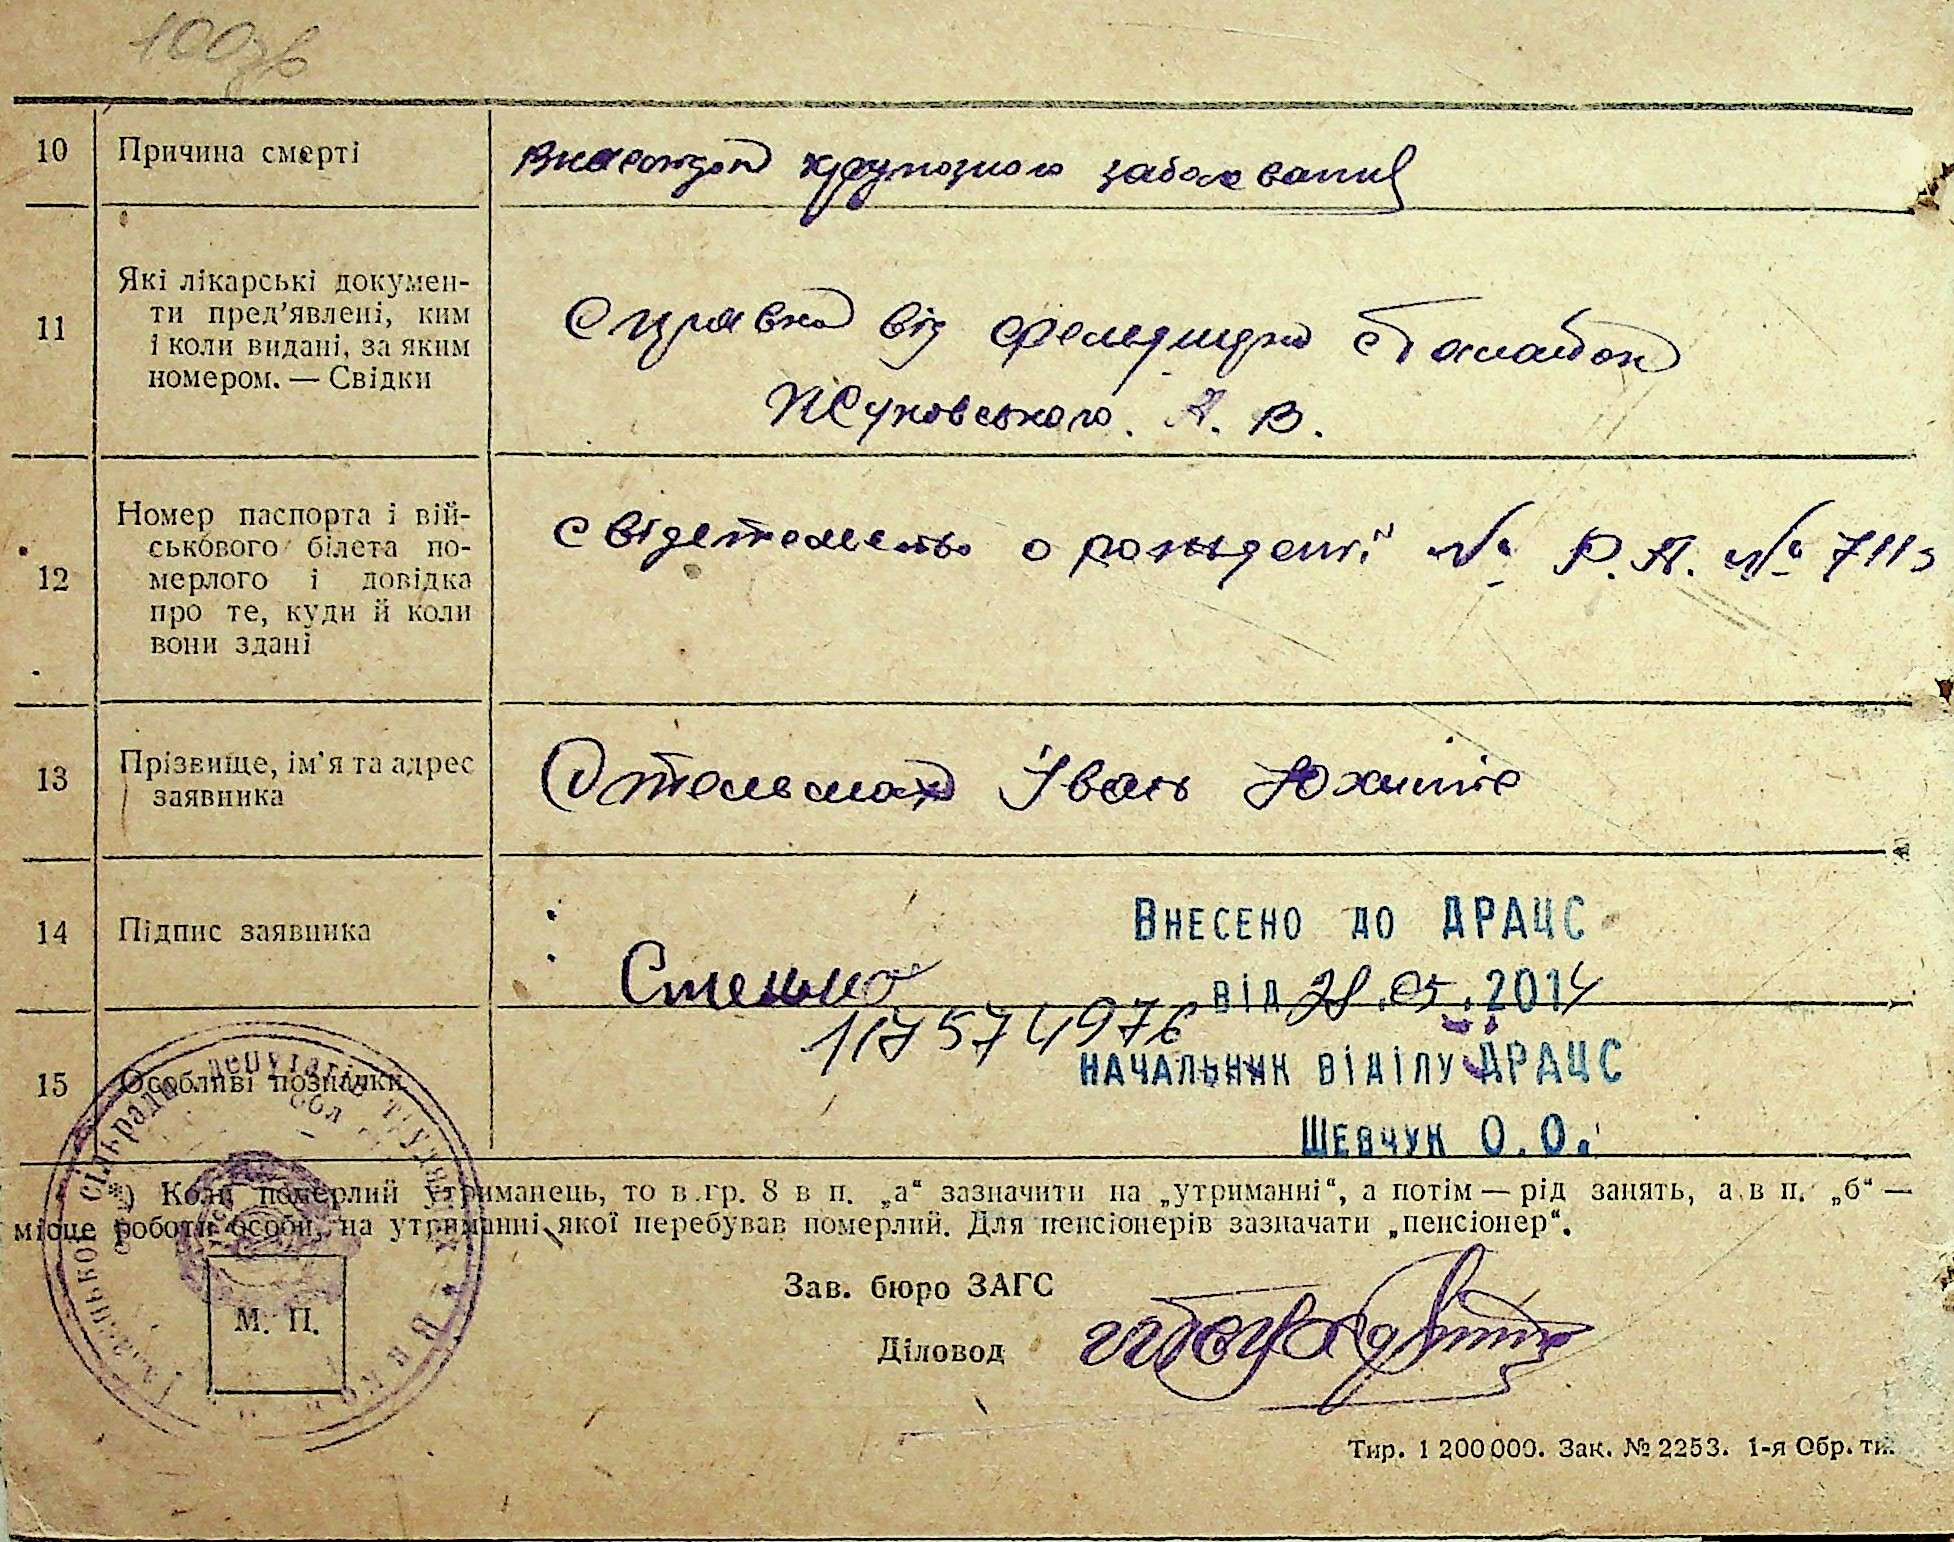 10 Причина смерті
крупозного заболеванія
11 Які лікарські докумен-
ти пред’явлені, ким
і коли видані, за яким
номером. — Свідки
Справка від
Жуковського. А. В.
12 Номер паспорта і вій-
ськового білета по-
мерлого і довідка
про те, куди й коли
вони здані
свідетельство о рождении № Р.А. № 711
13 Прізвище, ім’я та адрес
заявника
Стельмах Івань
14 Підпис заявника
Внесено до ДРАЦС
від 28.05.2014
15 Особливі позначки
начальник відділу ДРАЦС
Шевчук О.О.
*) Коли померлий утриманець, то в гр. 8 в п. „а“ зазначити на „утриманні“, а потім — рід занять, а в п. „б“ —
місце роботи особи, на утриманні якої перебував померлий. Для пенсіонерів зазначати „пенсіонер“.
Зав. бюро ЗАГС
М. П.
Діловод
Тир. 1 200 000. Зак. № 2253. 1-я Обр. ти.